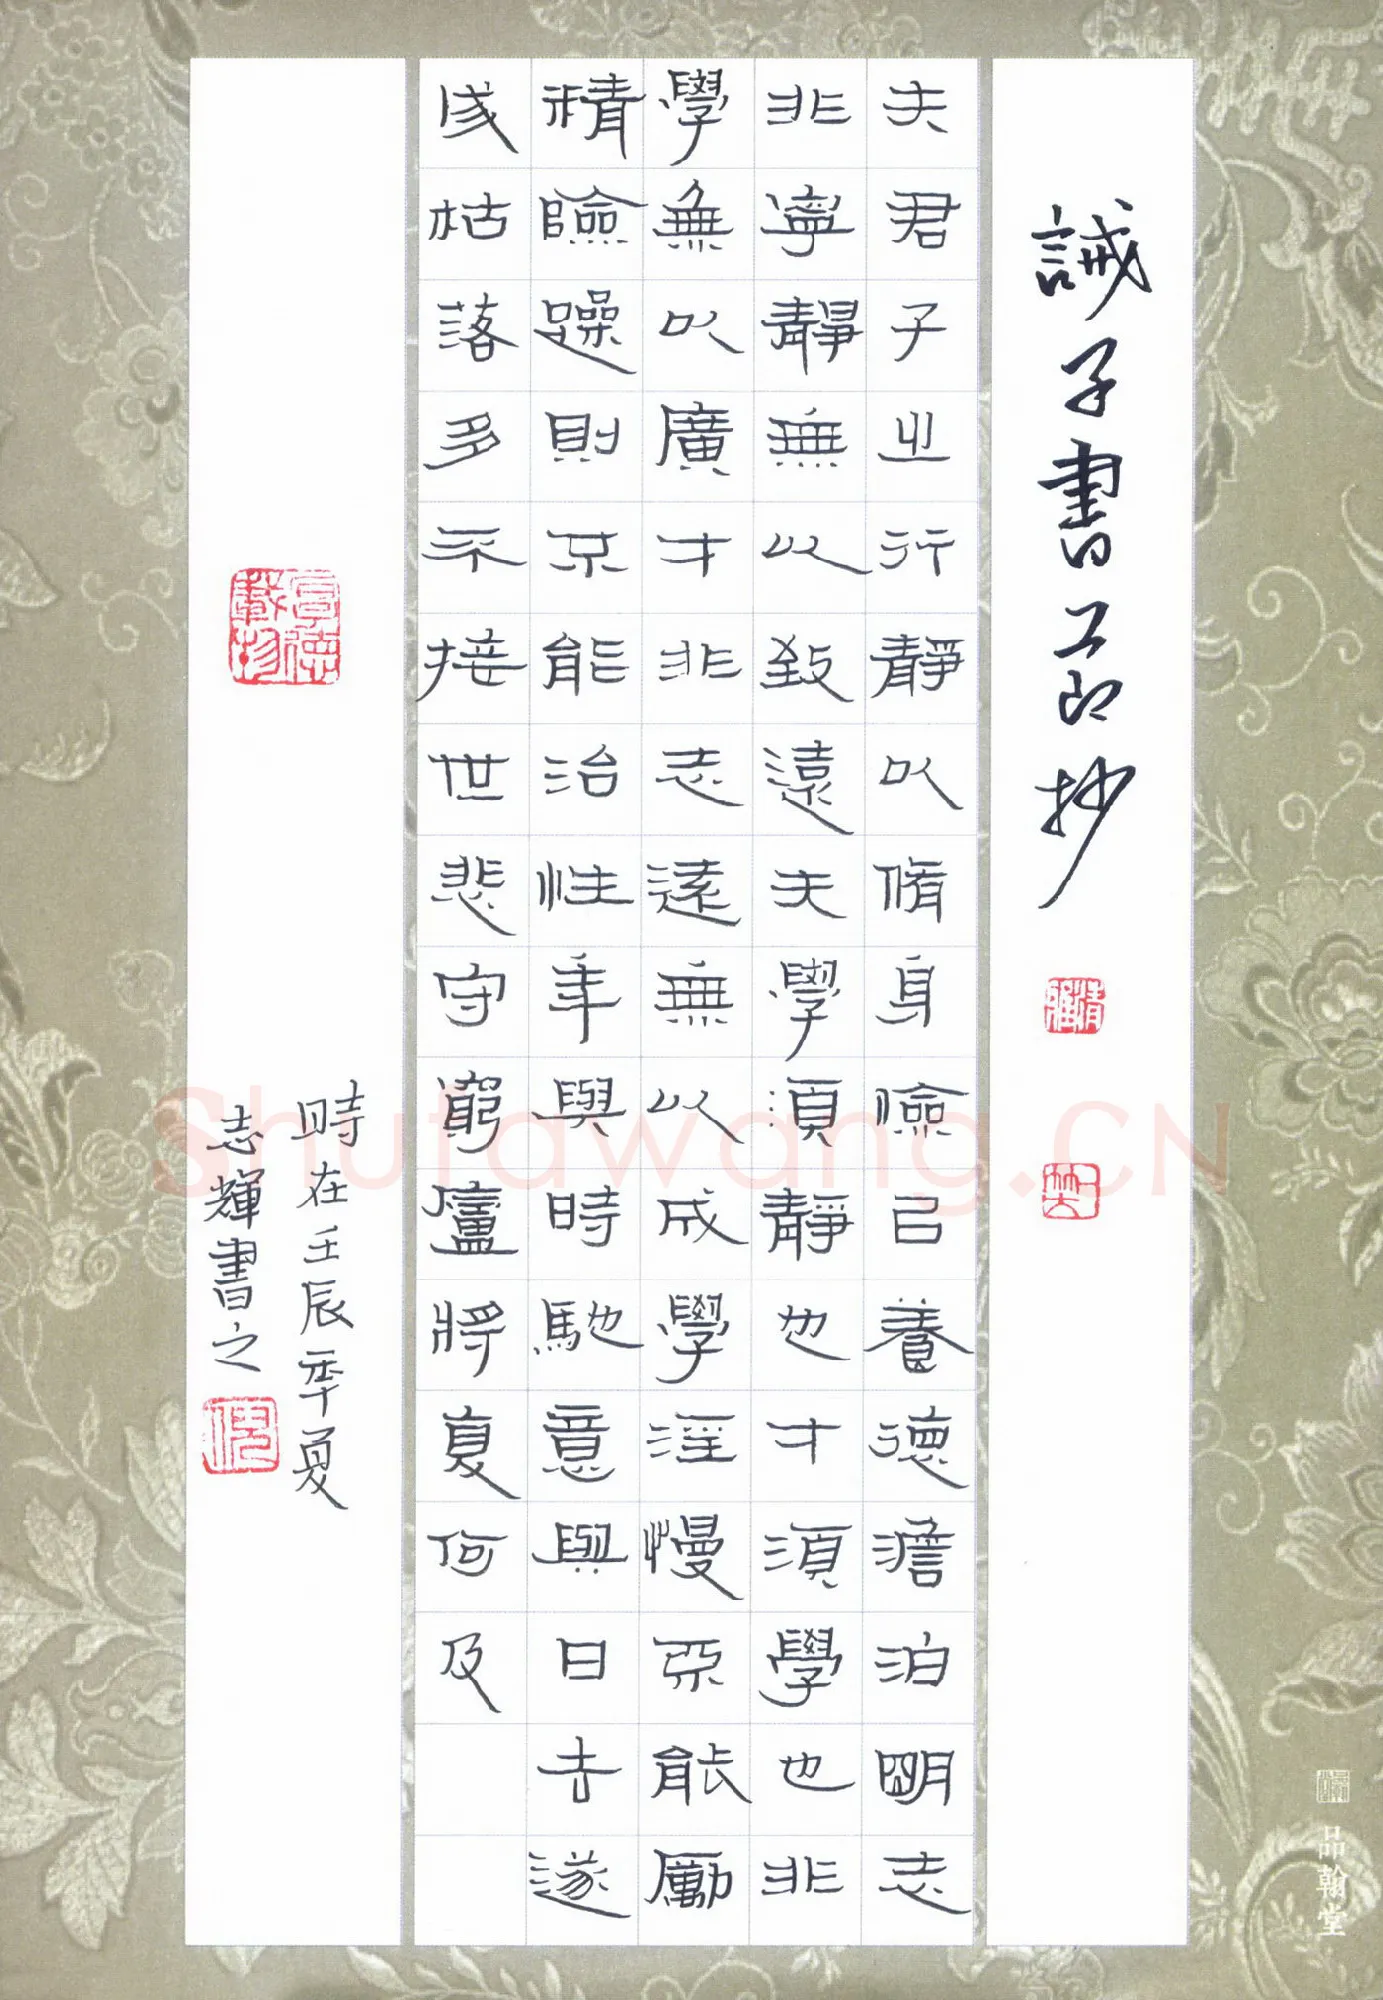 誡子書節抄
夫君子之行靜以脩身儉己養德澹泊明志
非寧靜無以致遠夫學須靜也才須學也非
學無以廣才非志遠無以成學淫慢不能勵
精險躁則不能治性年與時馳意與日去遂
成枯落多不接世悲守窮廬將复何及
時在壬辰年夏
志輝書之
厚德載物
品翰堂
Shufawang.CN